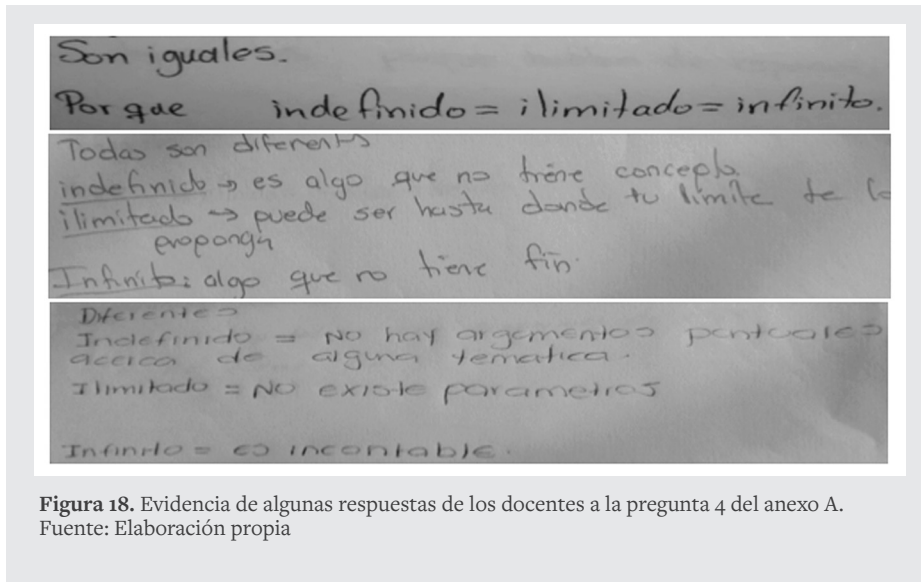 Son iguales.
Porque indefinido = ilimitado = infinito.
Todas son diferents
indefinido → es algo que no tiene concepto.
ilimitado → puede ser hasta donde tu límite te lo
proponga
Infinito: algo que no tiene fin.
Diferentes
Indefinido = No hay argumentos puntuales
acerca de alguna tematica.
Ilimitado = No existe parametros
Infinito = es incontable.
Figura 18. Evidencia de algunas respuestas de los docentes a la pregunta 4 del anexo A.
Fuente: Elaboración propia